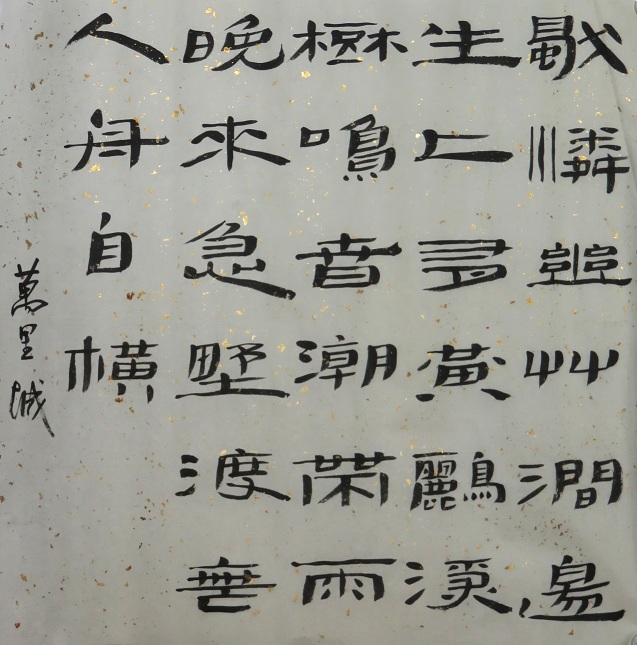 獨憐幽艸澗邊
生上有黃鸝深
樹鳴春潮帶雨
晚來急野渡無
人舟自橫
萬里城